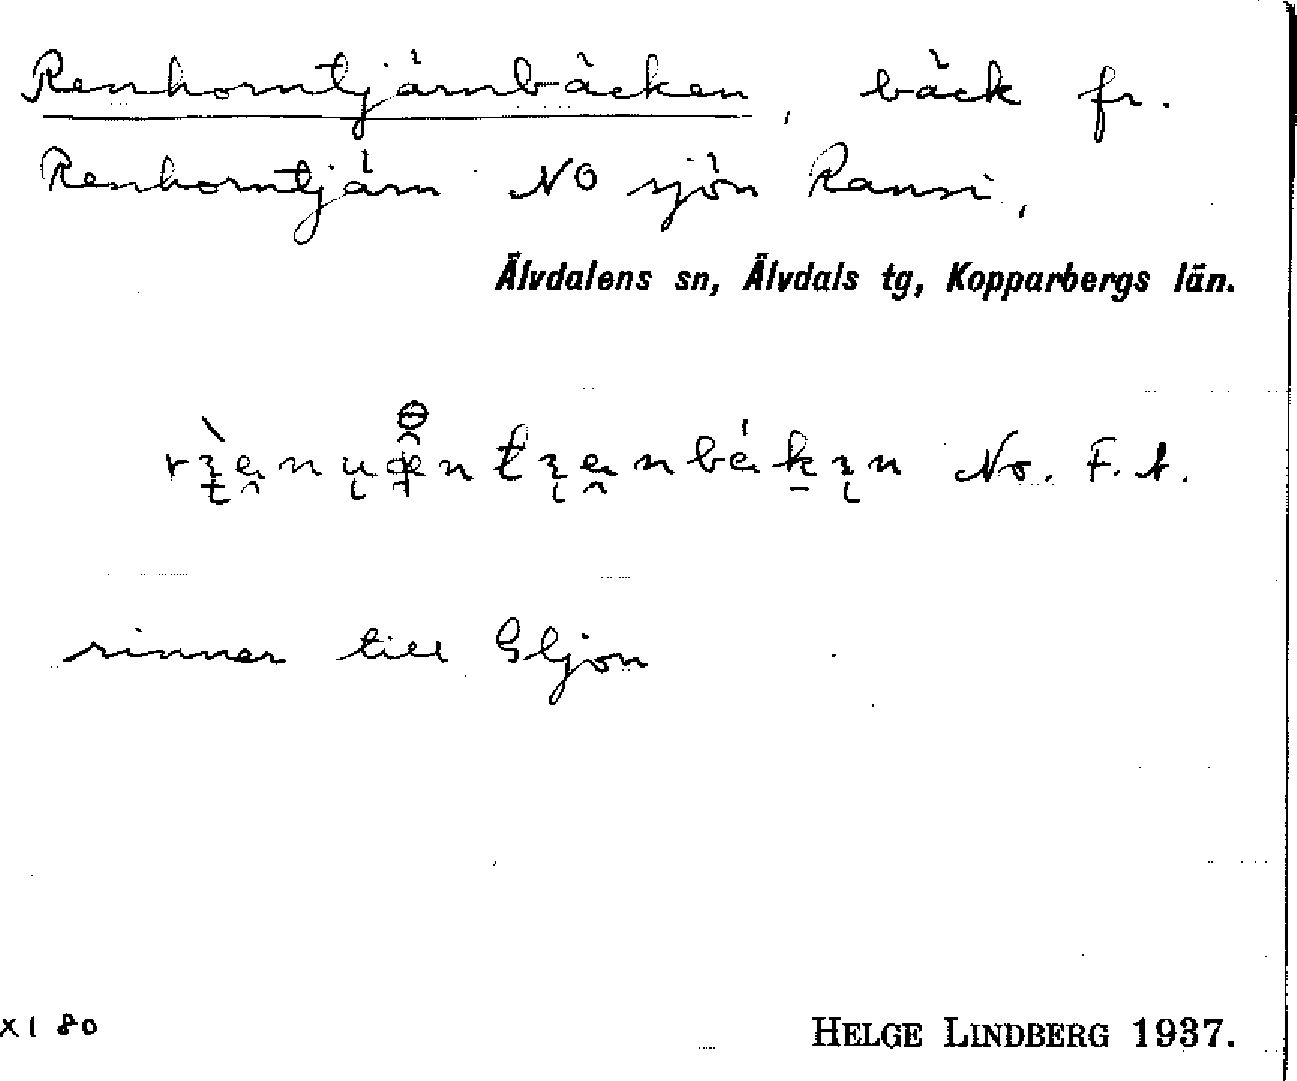 Renhorntjärnbäcken, bäck fr.
Renhorntjärn NO sjön Ransi,
Älvdalens sn, Älvdals tg, Kopparbergs län.
No. F. A.
rinner till Gljön
XI 80
HELGE LINDBERG 1937.